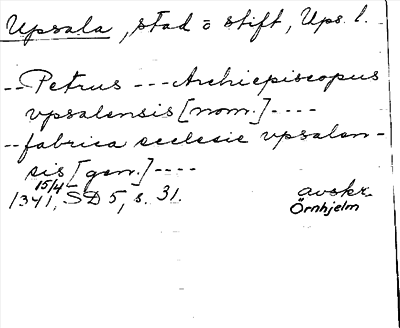 Upsala, stad o stift, Ups. l.
-- Petrus --- Archiepiscopus
vpsalensis [nom.] ----
-- fabrica ecclesie vpsalen-
sis [gen.] ----
15/4
1341, SD 5, s. 31.
avskr.
Örnhjelm